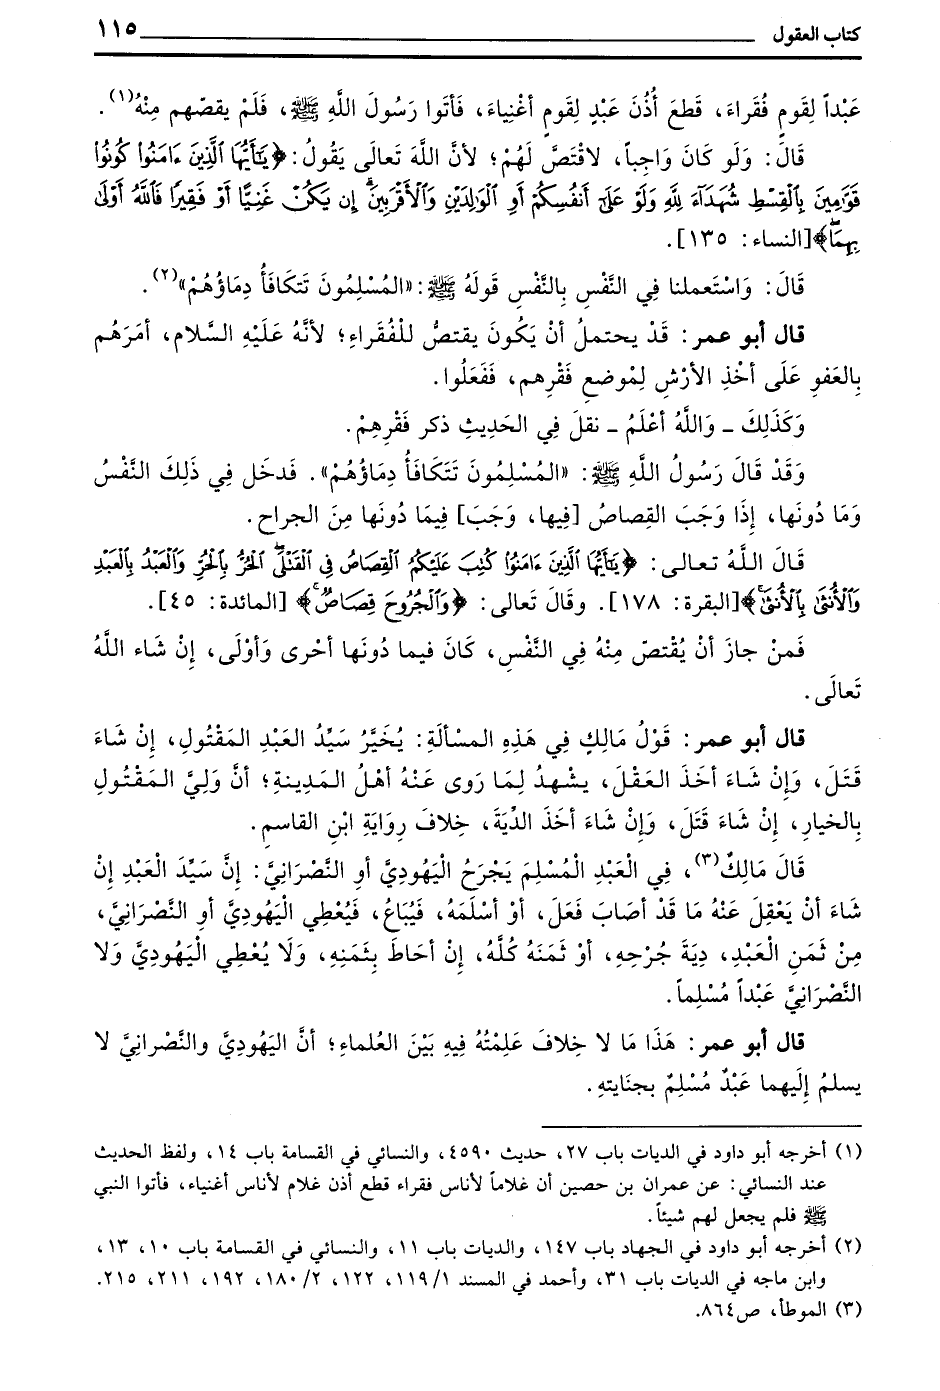 كتاب العقول ١١٥
عَبْداً لِقَومٍ فُقَراءَ، قَطعَ أُذُنَ عَبْدٍ لِقَومٍ أغْنِياءَ، فَأتَوا رَسُولَ اللَّهِ ﷺ، فَلَمْ يقصّهم مِنْهُ(١).
قَالَ: وَلَو كَانَ وَاجِباً، لاقْتَصَّ لَهُمْ؛ لأنَّ اللَّهَ تَعالَى يَقُولُ: ﴿يَٰٓأَيُّهَا ٱلَّذِينَ ءَامَنُوا۟ كُونُوا۟
قَوَّٰمِينَ بِٱلْقِسْطِ شُهَدَآءَ لِلَّهِ وَلَوْ عَلَىٰٓ أَنفُسِكُمْ أَوِ ٱلْوَٰلِدَيْنِ وَٱلْأَقْرَبِينَ ۚ إِن يَكُنْ غَنِيًّا أَوْ فَقِيرًا فَٱللَّهُ أَوْلَىٰ
بِهِمَا ۖ﴾[النساء: ١٣٥].
قَالَ: وَاسْتَعملنا فِي النَّفْسِ بِالنَّفْسِ قَولَهُ ﷺ: «المُسْلِمُونَ تَتَكَافَأُ دِمَاؤُهُمْ»(٢).
قال أبو عمر: قَدْ يحتملُ أنْ يَكُونَ يقتصُّ للْفُقَراءِ؛ لأنَّهُ عَلَيْهِ السَّلام، أمَرَهُم
بِالعَفوِ عَلَى أخْذِ الأرْشِ لِمْوضعِ فَقْرِهم، فَفَعَلُوا.
وَكَذَلِكَ ـ وَاللَّهُ أعْلَمُ ـ نقلَ فِي الحَديثِ ذكر فَقْرِهِمْ.
وَقَدْ قَالَ رَسُولُ اللَّهِ ﷺ: «المُسْلِمُونَ تَتَكَافَأُ دِمَاؤُهُمْ». فَدخَل فِي ذَلِكَ النَّفْسُ
وَمَا دُونَها، إذَا وَجَبَ القِصاصُ [فِيها، وَجَبَ] فِيمَا دُونَها مِنَ الجراح.
قَالَ اللَّهُ تعالى: ﴿يَٰٓأَيُّهَا ٱلَّذِينَ ءَامَنُوا۟ كُتِبَ عَلَيْكُمُ ٱلْقِصَاصُ فِى ٱلْقَتْلَى ۖ ٱلْحُرُّ بِٱلْحُرِّ وَٱلْعَبْدُ بِٱلْعَبْدِ
وَٱلْأُنثَىٰ بِٱلْأُنثَىٰ ۚ﴾[البقرة: ١٧٨]. وقَالَ تَعالى: ﴿وَٱلْجُرُوحَ قِصَاصٌ ۚ﴾ [المائدة: ٤٥].
فَمنْ جازَ أنْ يُقْتصّ مِنْهُ فِي النَّفْسِ، كَانَ فيما دُونَها أحْرى وَأوْلَى، إنْ شَاء اللَّهُ
تَعالَى.
قال أبو عمر: قَوْلُ مَالِكٍ فِي هَذِهِ المسألَةِ: يُخَيَّرُ سَيِّدُ العَبْدِ المَقْتُولِ، إنْ شَاءَ
قَتَلَ، وَإنْ شَاءَ أخَذَ العَقْلَ، يشْهدُ لِمَا رَوى عَنْهُ أهْلُ المَدِينةِ؛ أنَّ وَلِيَّ المَقْتُولِ
بِالخيارِ، إنْ شَاءَ قَتَلَ، وَإنْ شَاءَ أخَذَ الدِّيَةَ، خِلافَ رِوَايَةِ ابْنِ القاسمِ.
قَالَ مَالِكٌ(٣)، فِي الْعَبْدِ الْمُسْلِمِ يَجْرَحُ الْيَهُودِيَّ أوِ النَّصْرَانِيَّ: إنَّ سَيِّدَ العَبْدِ إنْ
شاءَ أنْ يَعْقِلَ عَنْهُ مَا قَدْ أصَابَ فَعَلَ، أوْ أسْلَمَهُ، فَيُبَاعُ، فَيُعْطِي الْيَهُودِيَّ أوِ النَّصْرَانِيَّ،
مِنْ ثَمَنِ الْعَبْدِ، دِيَةَ جُرْحِهِ، أوْ ثَمَنَهُ كُلَّهُ، إنْ أحَاطَ بِثَمَنِهِ، وَلَا يُعْطِي الْيَهُودِيَّ وَلَا
النَّصْرَانِيَّ عَبْداً مُسْلِماً.
قال أبو عمر: هَذَا مَا لا خِلافَ عَلِمْتُهُ فِيهِ بَيْنَ العُلَماءِ؛ أنَّ اليَهُودِيَّ والنَّصْرانِيَّ لا
يسلمُ إلَيهما عَبْدٌ مُسْلِمٌ بجنَايتهِ.
(١) أخرجه أبو داود في الديات باب ٢٧، حديث ٤٥٩٠، والنسائي في القسامة باب ١٤، ولفظ الحديث
عند النسائي: عن عمران بن حصين أن غلاماً لأناس فقراء قطع أذن غلام لأناس أغنياء، فأتوا النبي
ﷺ فلم يجعل لهم شيئاً.
(٢) أخرجه أبو داود في الجهاد باب ١٤٧، والديات باب ١١، والنسائي في القسامة باب ١٠، ١٣،
وابن ماجه في الديات باب ٣١، وأحمد في المسند ١/ ١١٩، ١٢٢، ٢/ ١٨٠، ١٩٢، ٢١١، ٢١٥.
(٣) الموطأ، ص٨٦٤.